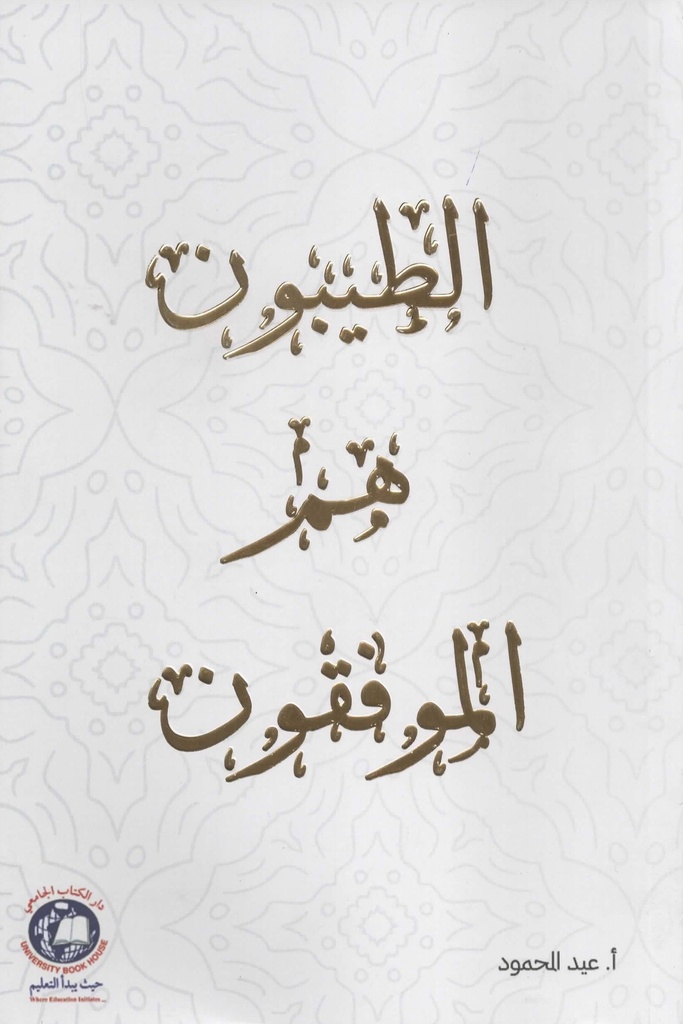 الطيبون
هم
الموفقون
أ. عيد المحمود
دار الكتاب الجامعي
UNIVERSITY BOOK HOUSE
حيث يبدأ التعليم
Where Education Initiates ...